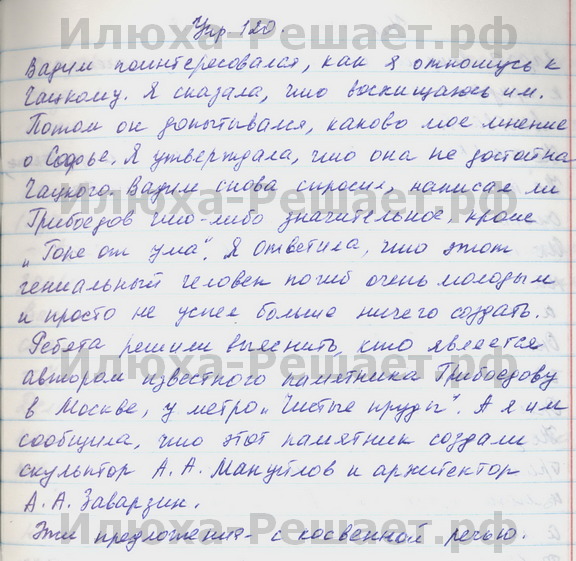 Илюха-Решает.рф
Упр 120.
Вадим поинтересовался, как я отношусь к
Чацкому. Я сказала, что восхищаюсь им.
Потом он допытывался, каково мое мнение
о Софье. Я утверждала, что она не достойна
Чацкого. Вадим снова спросил, написал ли
Илюха-Решает.рф
Грибоедов что-либо значительное, кроме
„Горе от ума". Я ответила, что этот
гениальный человек погиб очень молодым
и просто не успел больше ничего создать.
Ребята решили выяснить, кто является
Илюха-Решает.рф
автором известного памятника Грибоедову
в Москве, у метро „Чистые пруды". А я им
сообщила, что этот памятник создали
скульптор А. А. Мануйлов и архитектор
А. А. Заварзин.
Эти предложения - с косвенной речью.
Илюха-Решает.рф